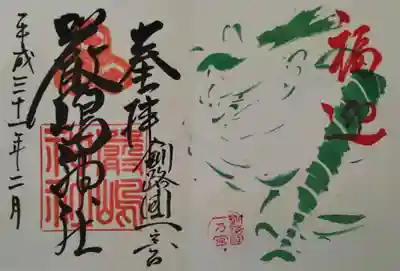 福迎
奉拝
釧路国一之宮
嚴嶋神社
平成三十一年二月